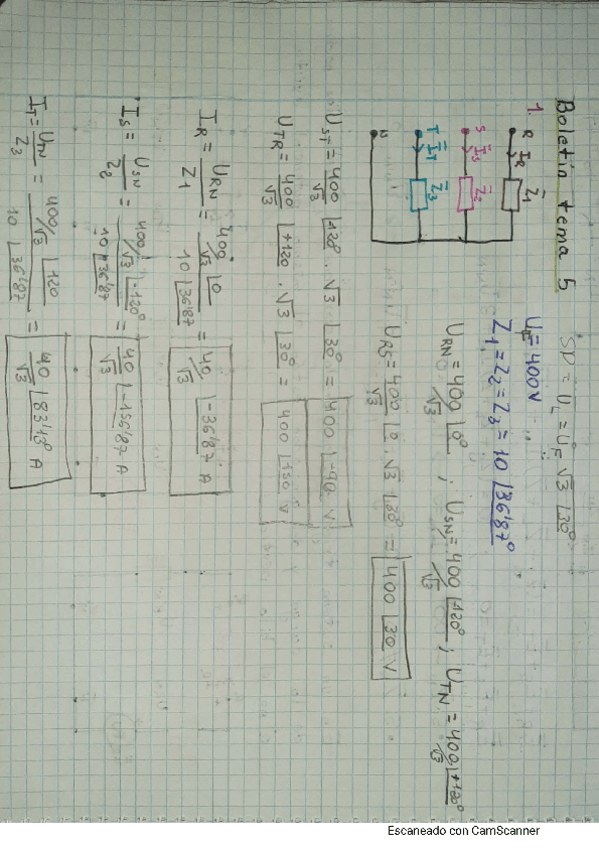 Boletín tema 5
SD = U_L = U_F √3 ∠30°
1.
R I_R Z̄1
S Ī_S Z̄2
T Ī_T Z̄3
N
U=400V
Z1 = Z2 = Z3 = 10 ∠36'87°
U_RN = 400/√3 ∠0° ; U_SN = 400/√3 ∠-120° ; U_TN = 400/√3 ∠+120°
U_RS = 400/√3 ∠0 · √3 ∠30° = 400 ∠30 V
U_ST = 400/√3 ∠-120° · √3 ∠30° = 400 ∠-90 V
U_TR = 400/√3 ∠+120 · √3 ∠30° = 400 ∠150° V
I_R = U_RN/Z1 = 400/√3 ∠0 / 10 ∠36'87 = 40/√3 ∠-36'87 A
I_S = U_SN/Z2 = 400/√3 ∠-120° / 10 ∠36'87 = 40/√3 ∠-156'87 A
I_T = U_TN/Z3 = 400/√3 ∠120 / 10 ∠36'87 = 40/√3 ∠83'13° A
Escaneado con CamScanner